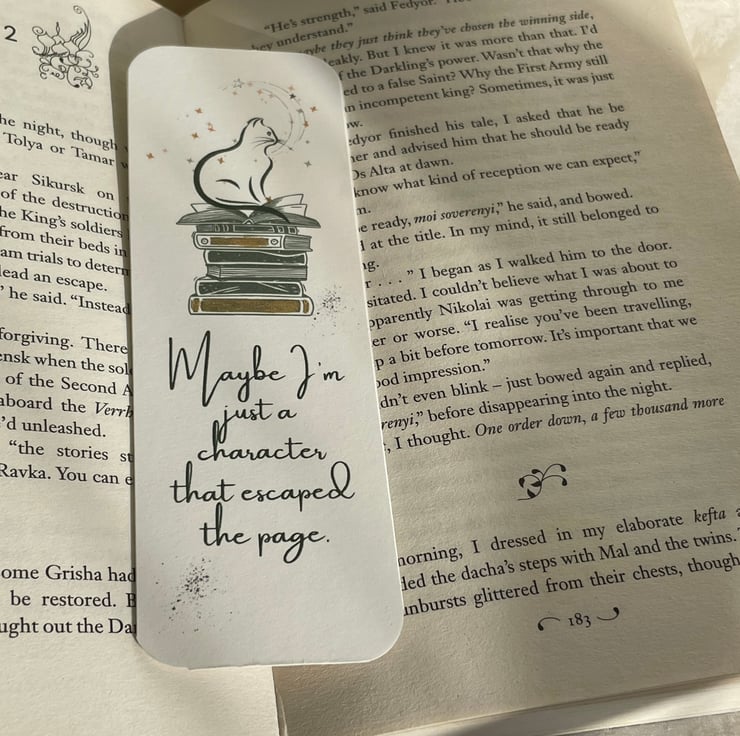 2
he night, though
Tolya or Tamar
ear Sikursk on
of the destruction
he King's soldiers
from their beds in
am trials to determ
lead an escape.
he said. "Instead
forgiving. There
ensk when the sol
of the Second A
aboard the Verrh
'd unleashed.
"the stories st
Ravka. You can e
ome Grisha had
be restored. B
ught out the Da
Maybe I'm
just a
character
that escaped
the page.
"He's strength," said Fedyor.
hey understand."
aybe they just think they've chosen the winning side,
eakly. But I knew it was more than that. I'd
f the Darkling's power. Wasn't that why the
ed to a false Saint? Why the First Army still
n incompetent king? Sometimes, it was just
w.
edyor finished his tale, I asked that he be
ner and advised him that he should be ready
Os Alta at dawn.
know what kind of reception we can expect,"
m.
e ready, moi soverenyi," he said, and bowed.
d at the title. In my mind, it still belonged to
ng.
r . . . . " I began as I walked him to the door.
sitated. I couldn't believe what I was about to
pparently Nikolai was getting through to me
er or worse. "I realise you've been travelling,
p a bit before tomorrow. It's important that we
ood impression."
dn't even blink – just bowed again and replied,
renyi," before disappearing into the night.
, I thought. One order down, a few thousand more
norning, I dressed in my elaborate kefta
led the dacha's steps with Mal and the twins.
unbursts glittered from their chests, though
183